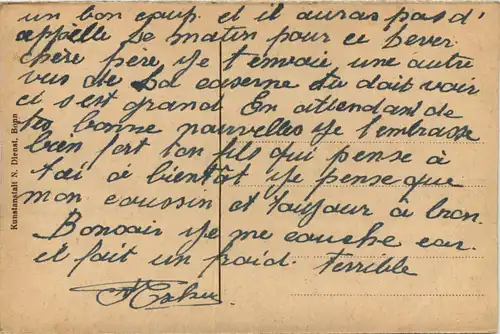 un bon coup. et il auras pas d'
appelle le matin pour ce lever
chère père, je t'envoie une autre
vus de la caserne tu doit voir
ci s'est grand En attendant de
tes bonne nouvelles je t'embrasse
bien fort ton fils qui pense à
toi à bientôt je pense que
mon coussin et toujour à bron.
Bonsoir je me couche car
il fait un froid. terrible
Kunstanstalt N. Dienst, Bonn